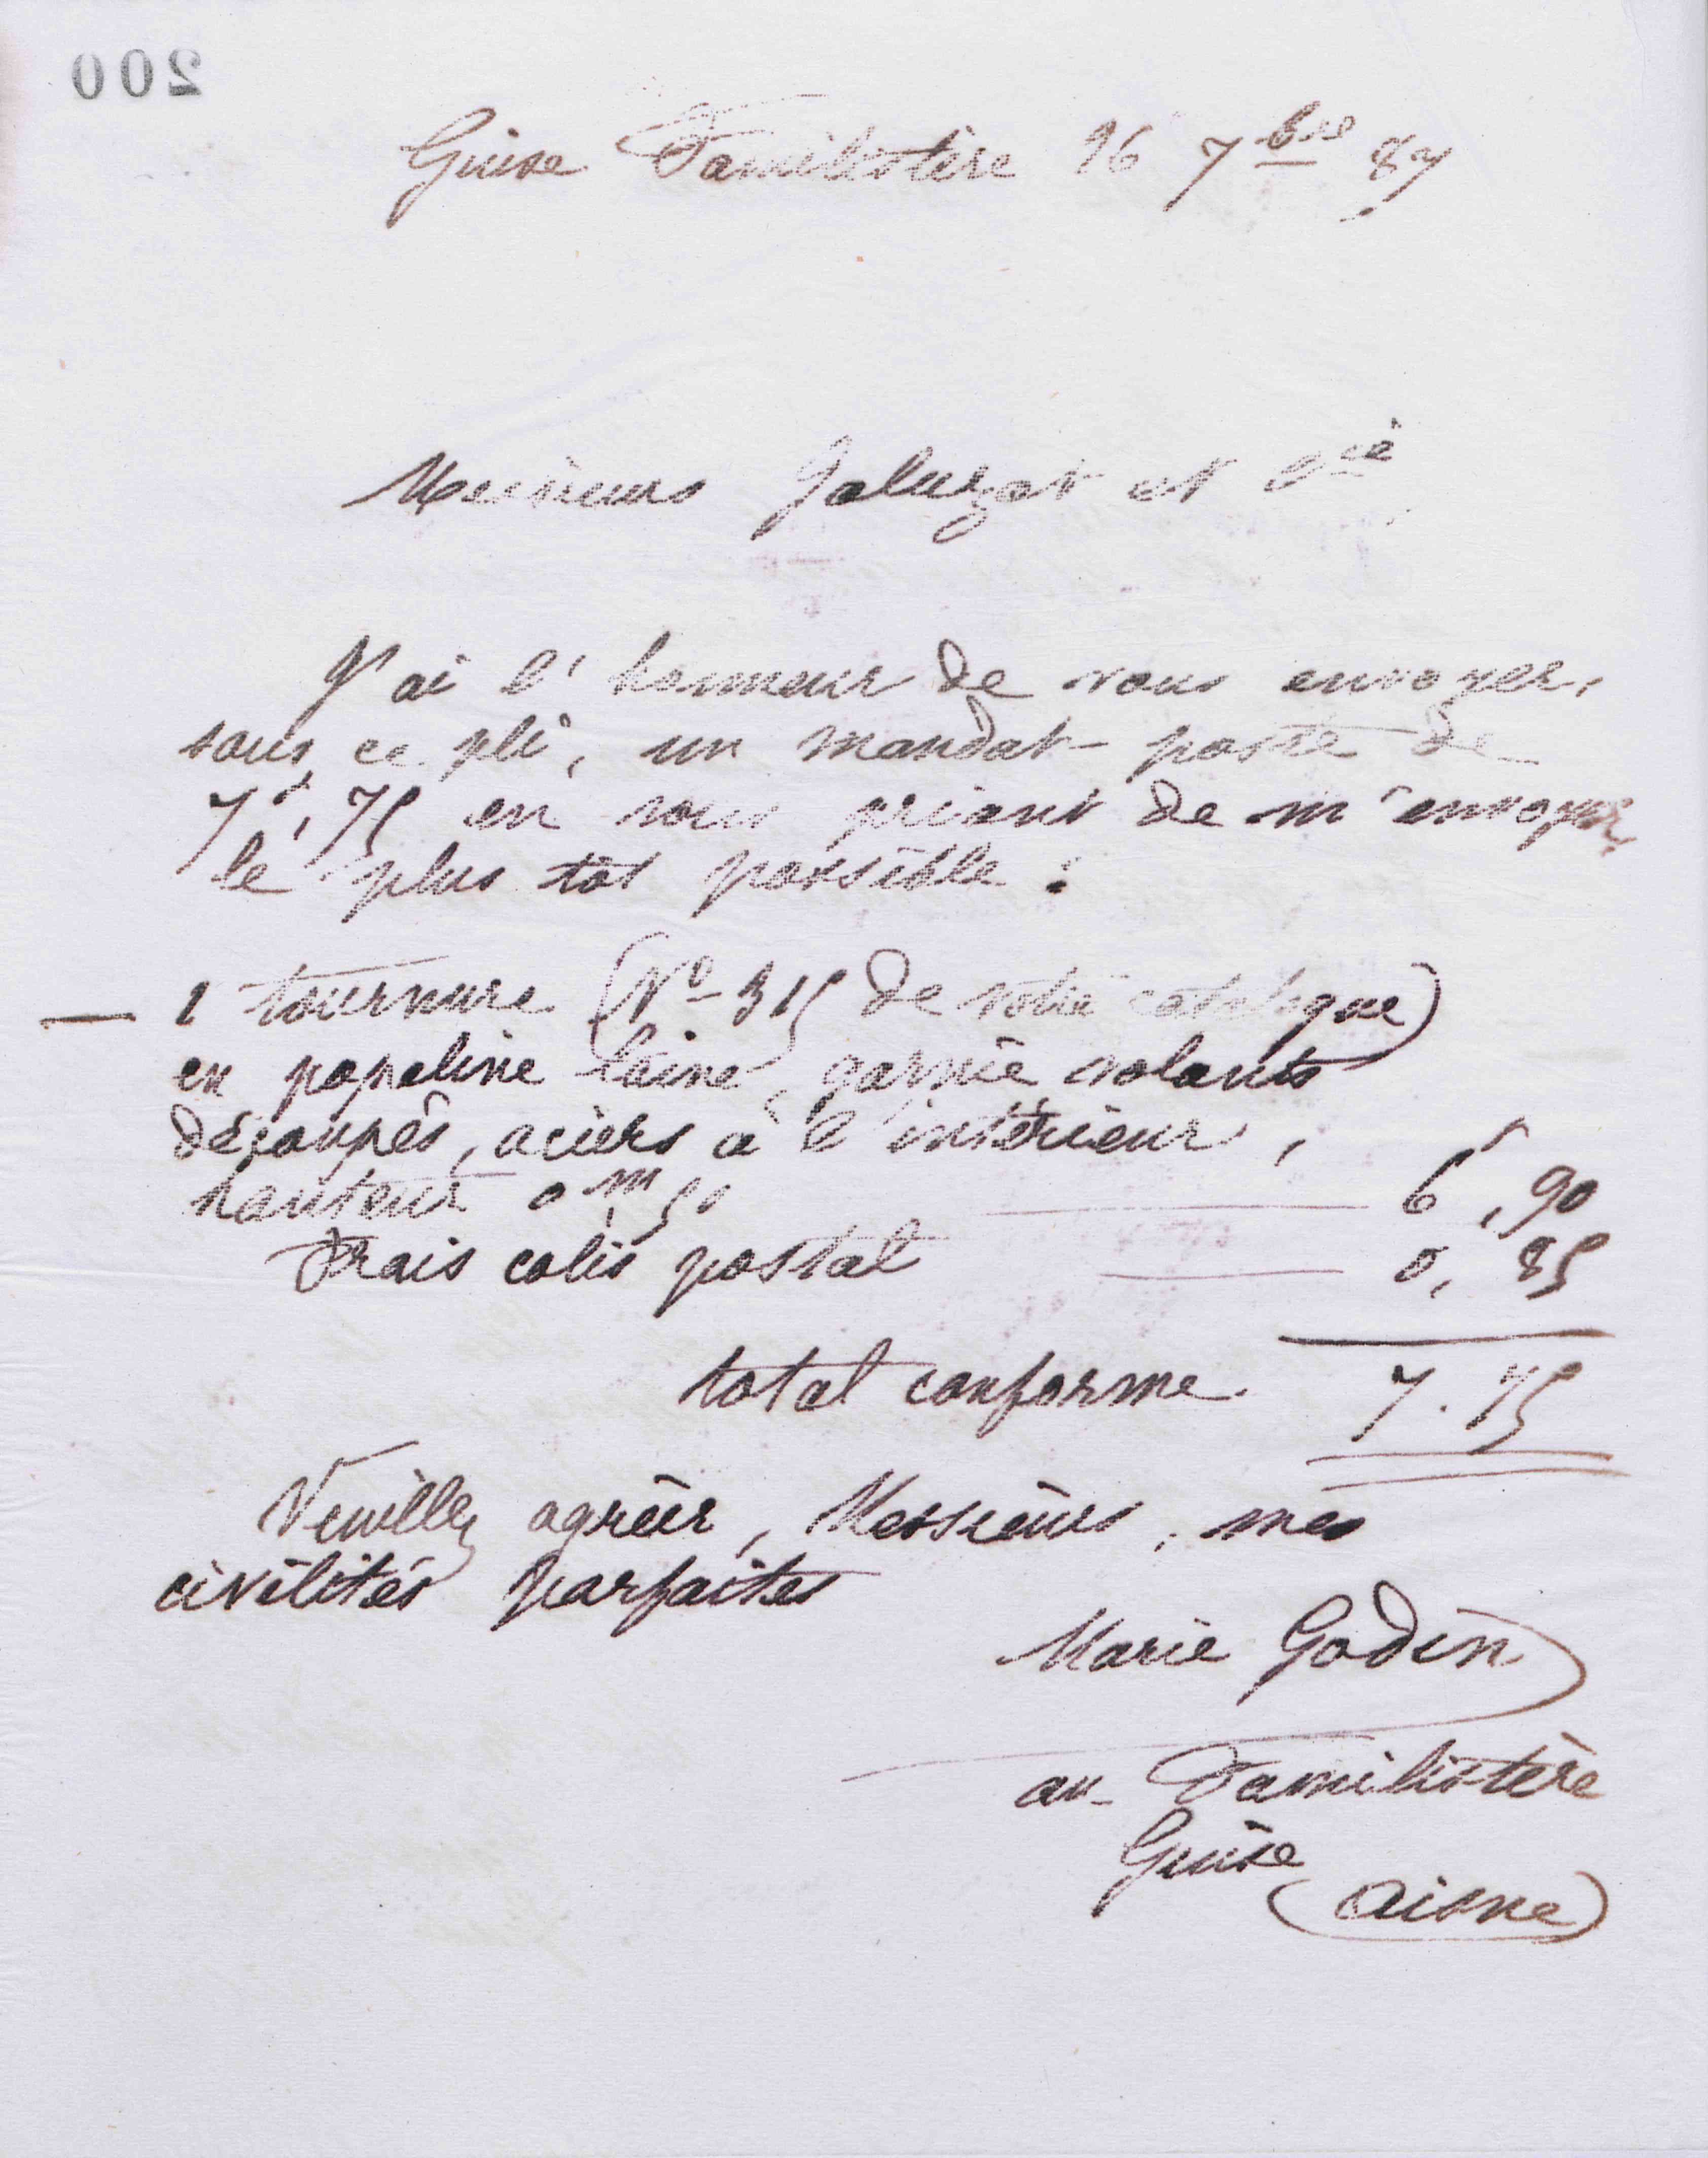 200
Guise Familistère 16 7bre 87
Messieurs Jaluzot et Cie
J'ai l'honneur de vous envoyer,
sous ce pli, un mandat-poste de
7f,75 en vous priant de m'envoyer
le plus tôt possible :
— 1 tournure (No 315 de votre catalogue)
en popeline laine, garnie volants
découpés, aciers à l'intérieur,
hauteur 0m50 — 6f,90
Frais colis postal — 0,85
total conforme. 7.75
Veuillez agréer, Messieurs, mes
civilités parfaites
Marie Godin
au Familistère
Guise
(Aisne)